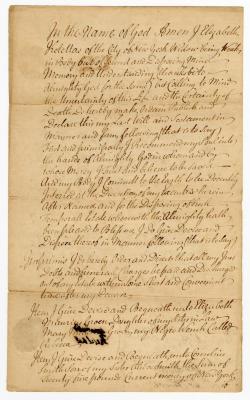 In the Name of God Amen I Elizabeth
of the City of New York Widow being Weak
in Body but of Sound and Disposing Mind
Memory and Understanding thanks be to
Almighty God for the Same but Calling to Mind
the Uncertainty of this Life and the Certainty of
Death Do hereby make Ordain Publish and
Declare this my Last Will and Testament in
Manner and form following (that is to Say)
First and principally I recommend my Soul into
the hands of Almighty God in whom and by
whose Mercy I trust and believe to be Saved
And my Body I Commit to the Earth to be Decently
Interred at the Discretion of my Executors herein
after Named, and for the Disposing of Such
Temporall Estate wherewith the Almighty hath
been pleased to Bless me I Do Give Devise and
Dispose thereof in Manner following (that is to Say)
Imprimis I hereby Order and Direct that all my Just
Debts and funerall Charges be paid and Discharged
out of my Estate within some Short and Convenient
time after my Decease
Item I Give Devise and Bequeath unto Elizabeth
Daughter of
Mary my Negro Wench Called

Item I Give Devise and Bequeath unto Cornelius
the Sum of
Seventy five pounds Current money of New York